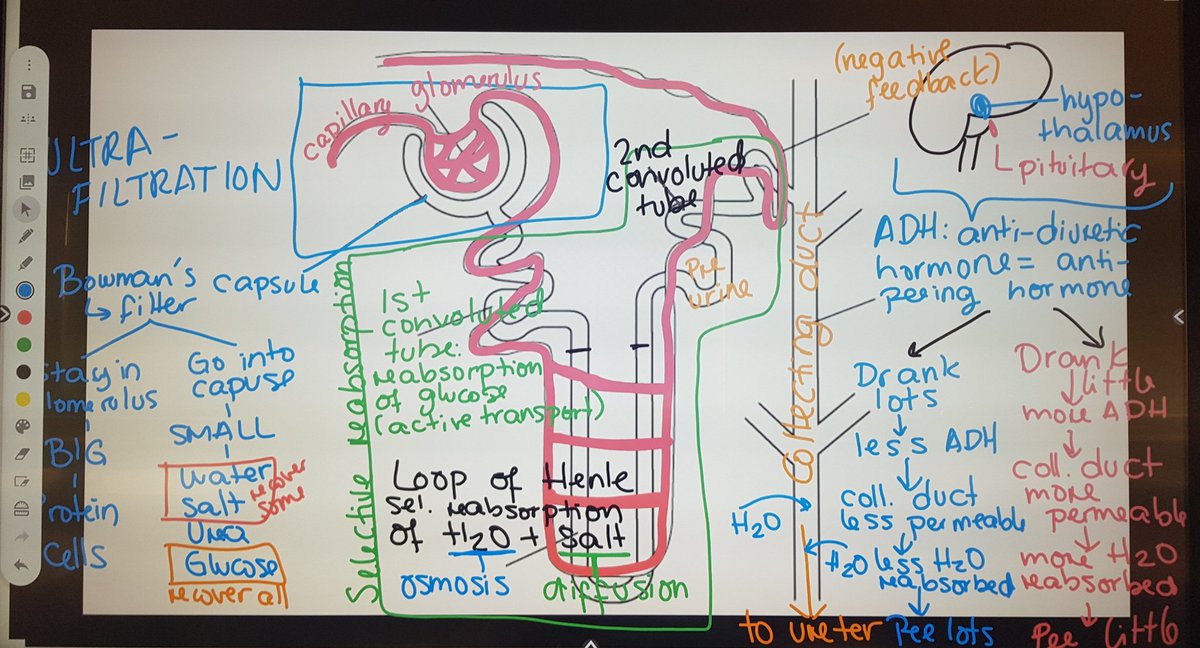 ULTRA-
FILTRATION
Bowman's capsule
↳ filter
Stay in
glomerulus
BIG
Protein
Cells
Go into
capuse
SMALL
Water
Salt
recover
some
Urea
Glucose
recover all
capillary
glomerulus
Selective reabsorption
1st
convoluted
tube:
reabsorption
of glucose
(active transport)
Loop of Henle
sel. reabsorption
of H2O + Salt
osmosis
diffusion
2nd
convoluted
tube
Pre
urine
Collecting duct
H2O
H2O
to ureter
(negative
feedback)
hypo-
thalamus
pituitary
ADH: anti-diuretic
hormone = anti-
peeing hormone
Drank
lots
less ADH
coll. duct
less permeable
less H2O
reabsorbed
Pee lots
Drank
little
more ADH
coll. duct
more
permeable
more H2O
reabsorbed
Pee little